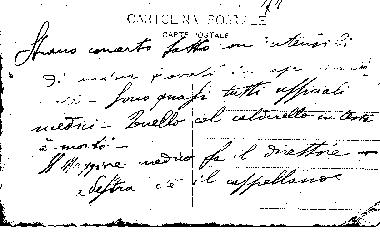 CARTOLINA POSTALE
CARTE POSTALE
Strano concerto fatto con utensili
di
Sono quasi tutti ufficiali
medici - Quello col calderotto in testa
è morto -
Il Maggiore medico fa il direttore -
a destra c'è il cappellano